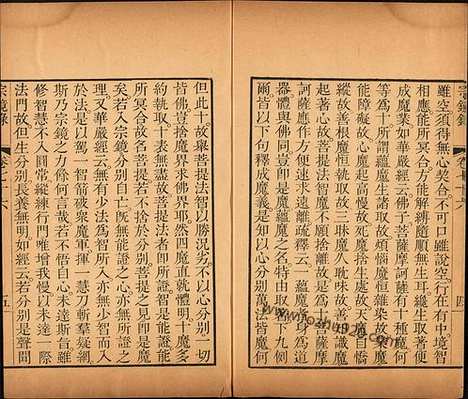 雖空須得無心契合不可口雖說空行在有中境智
相應能所冥合方能解縛隨順無生耳纔生取著便
成魔業如華嚴經云佛子菩薩摩訶薩有十種魔何
等為十所謂蘊魔生諸取故煩惱魔恒雜染故業魔
能障礙故心魔起高慢故死魔捨生處故天魔自憍
縱故善根魔恒執取故三昧魔久耽味故善知識魔
起著心故菩提法智魔不願捨離故是為十菩薩摩
訶薩應作方便速求遠離釋云一蘊魔者身為道
器體與佛同豈即是魔蘊魔之名特由取著下九例
爾皆以下句釋成魔義是知以心分別萬法皆魔何
宗鏡錄
四
但此十故舉菩提法智以勝況劣不以心分別一切
皆佛豈捨魔界求佛界耶然四魔直就體明十魔多
約執取十表無盡故菩提法智即是所證能所證能
所冥合故名菩提若不捨於分別菩提之見即是魔
矣若入宗鏡分別自亡既無能證之心亦無所證之
理又華嚴經云無有少法為智所入亦無少智而入
於法是以駕一智箭破衆魔軍揮一慧刀斬羣疑網
斯乃宗鏡之力何言哉若不悟自心未達斯旨雖
修智慧不入圓常縱練行門唯增我慢以未達一際
法門故但生分別長養無明如經云若分別是聲聞
宗鏡錄
五
www.fozhu920.com